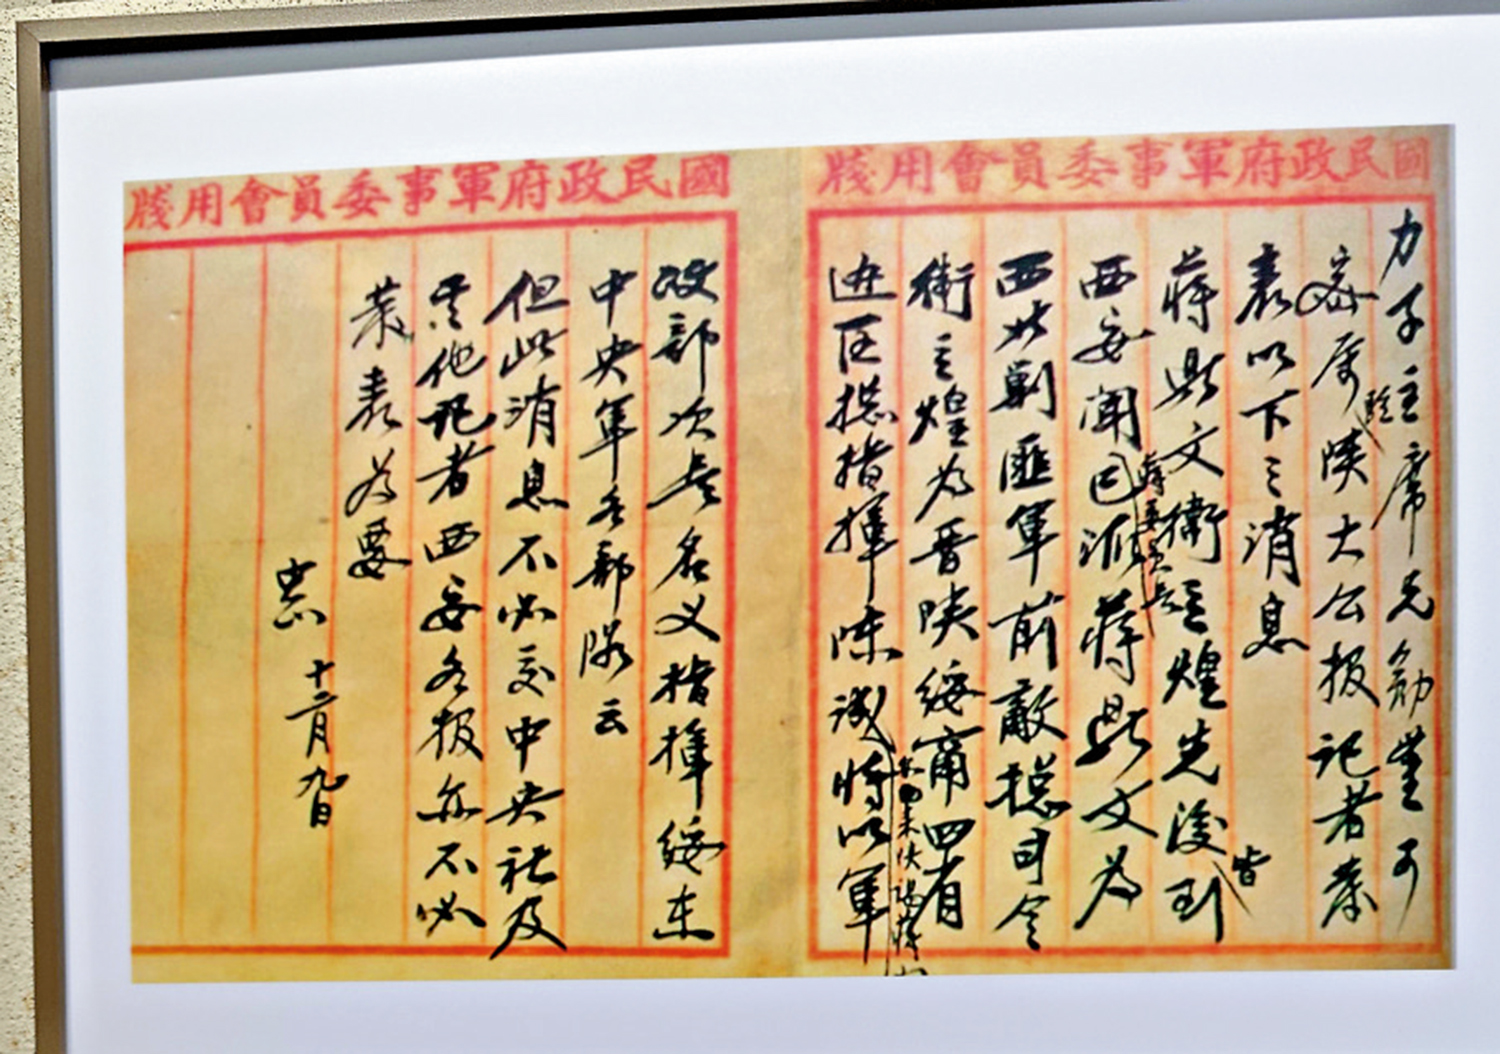 國民政府軍事委員會用牋
力子主席兄勛鑒可
密属駐陝大公报记者發
表以下之消息
蔣鼎文衛立煌先後皆到
西安聞蔣委員長已派蔣鼎文為
西北剿匪軍前敵總司令
衛立煌為晉陝綏甯四省
边区總指揮陳誠來陝謁蔣將以軍
國民政府軍事委員會用牋
政部次長名义指揮綏東
中央軍各部隊云
但此消息不必交中央社及
其他记者西安各报亦不必
發表為要
中正 十二月九日